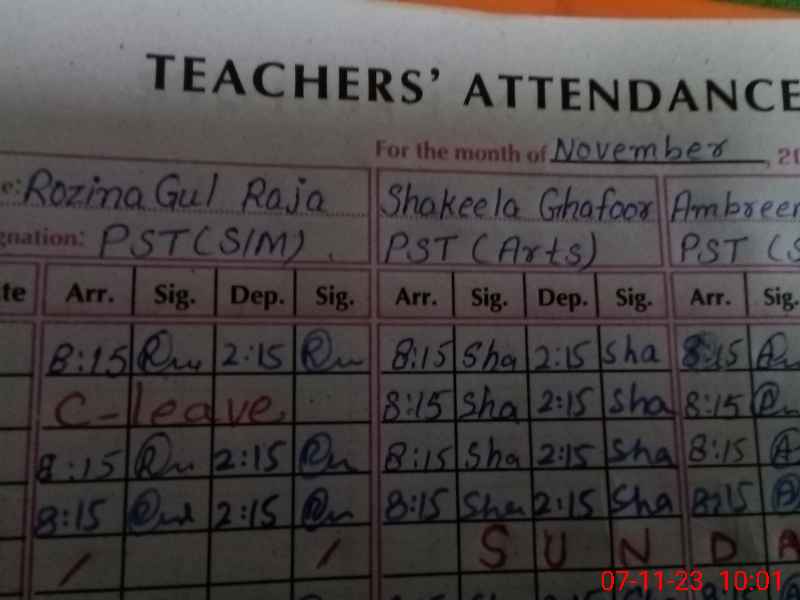 TEACHERS' ATTENDANCE
For the month of November, 20
e: Rozina Gul Raja Shakeela Ghafoor Ambreen
gnation: PST (SIM). PST (Arts) PST (S
te Arr. Sig. Dep. Sig. Arr. Sig. Dep. Sig. Arr. Sig.
8:15 2:15 8:15 Sha 2:15 Sha 8:15
C-leave. 8:15 Sha 2:15 Sha 8:15
8:15 2:15 8:15 Sha 2:15 Sha 8:15
8:15 2:15 8:15 Sha 2:15 Sha 8:15
/ / S U N D A
07-11-23 10:01